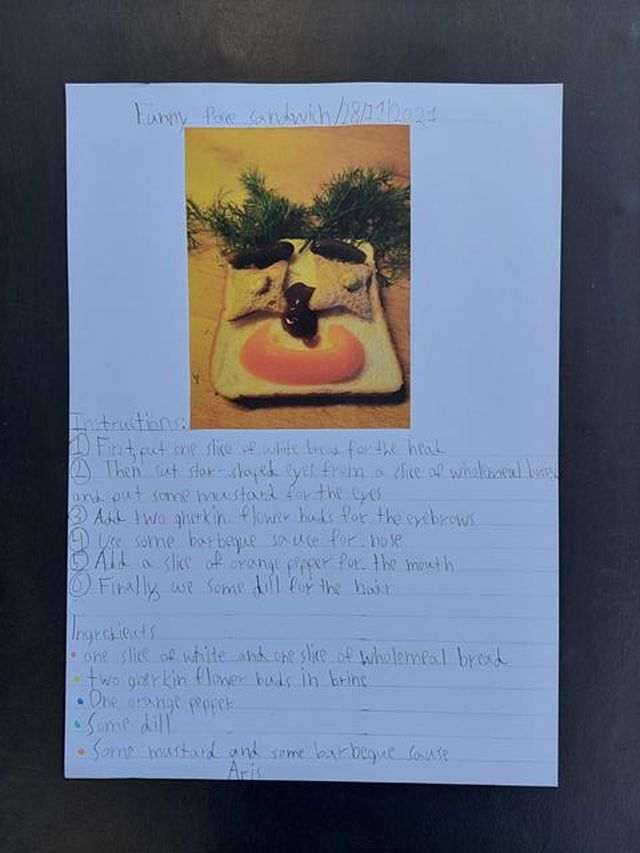 Funny Face sandwich/28/11/2021
Instructions:
① First, put one slice of white bread for the head
② Then cut star-shaped eyes from a slice of wholemeal bread
and put some mustard for the eyes
③ Add two gherkin flower buds for the eyebrows
④ Use some barbeque sauce for nose
⑤ Add a slice of orange pepper for the mouth
⑥ Finally, use some dill for the hair
Ingredients
• one slice of white and one slice of wholemeal bread
• two gherkin flower buds in brine
• One orange pepper
• Some dill
• Some mustard and some barbeque sause
Aris